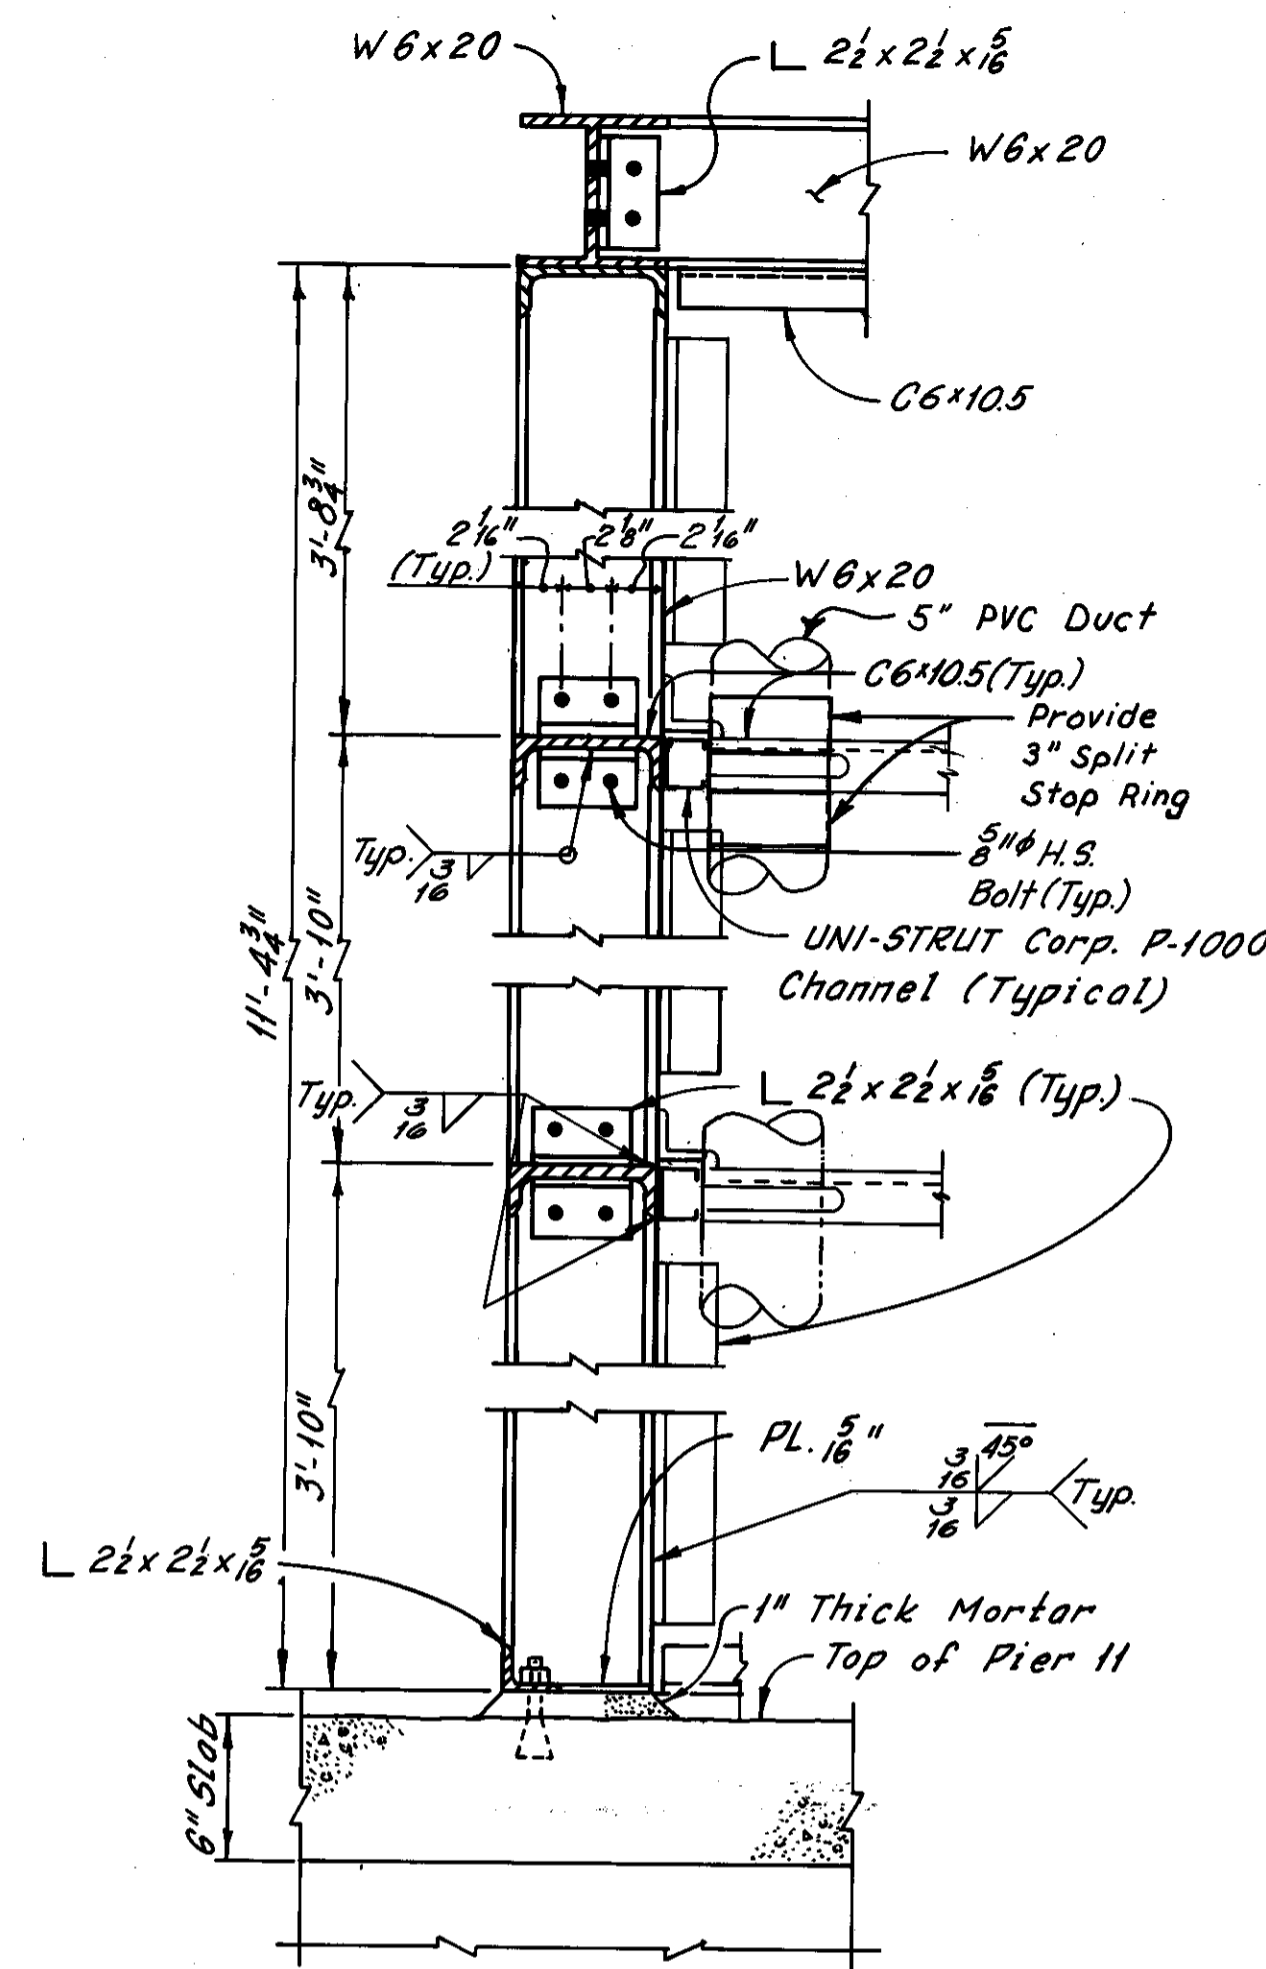 W 6 x 20
L 2½ x 2½ x 5/16
W 6 x 20
C6×10.5
3'-8¾"
2 1/16" 2⅛" 2 1/16"
(Typ.)
W 6 x 20
5" PVC Duct
C6×10.5 (Typ.)
Provide
3" Split
Stop Ring
Typ. 3/16
5/8"φ H.S.
Bolt (Typ.)
UNI-STRUT Corp. P-1000
Channel (Typical)
11'-4¾"
3'-10"
Typ. 3/16
L 2½ x 2½ x 5/16 (Typ.)
3'-10"
PL. 5/16"
3/16 45°
3/16 Typ.
L 2½ x 2½ x 5/16
1" Thick Mortar
Top of Pier 11
6" Slab